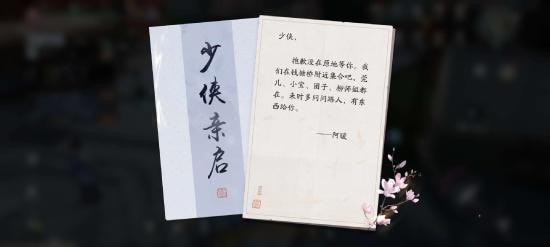 少侠亲启
少侠，
抱歉没在原地等你。我
们在钱塘桥附近集合吧，莞
儿、小宝、团子、杨师姐都
在。来时多问问路人，有东
西给你。
——阿暖